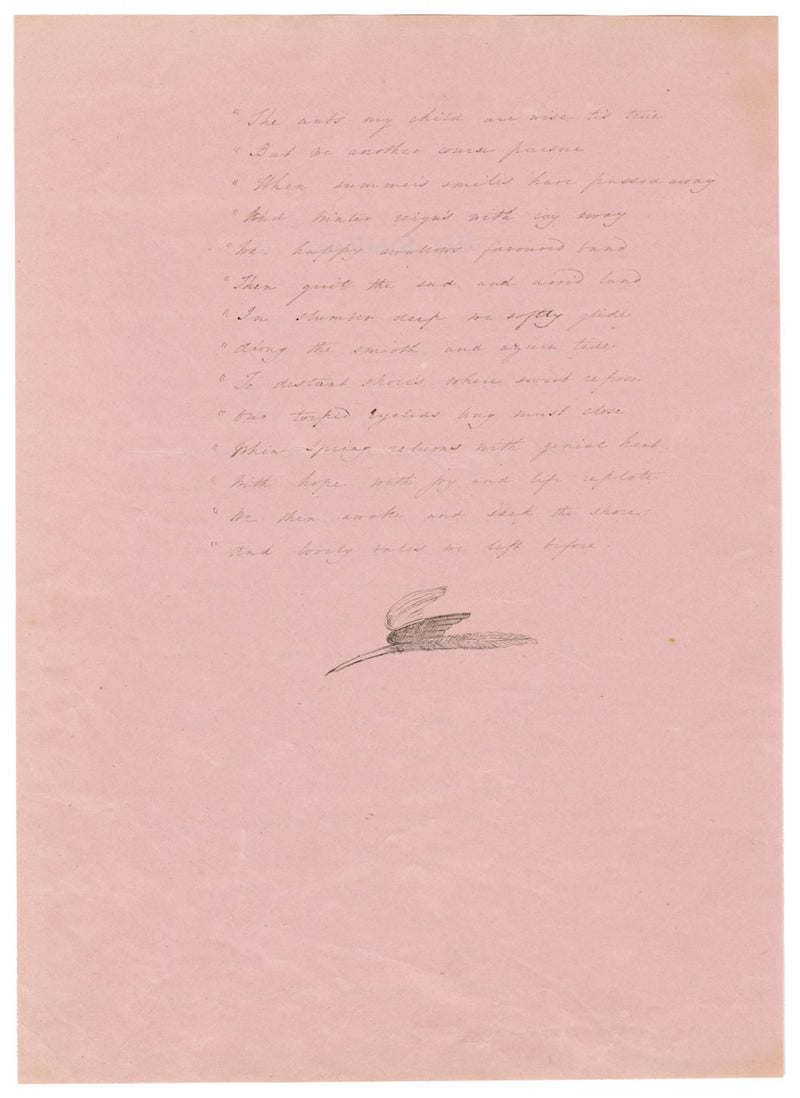 " The ants my child are wise tis true
" But we another course pursue
" When summer's smiles have passed away
" And winter reigns with icy sway
" We happy swallows favoured band
" Then quit the sad and arid land
" In slumber deep we softly glide
" Along the smooth and azure tide.
" To distant shores where sweet repose
" Our torpid eyelids long must close
" When Spring returns with genial heat,
" With hope with joy and life replete
" We then awake and seek the shore.
" And lovely vales we left before.